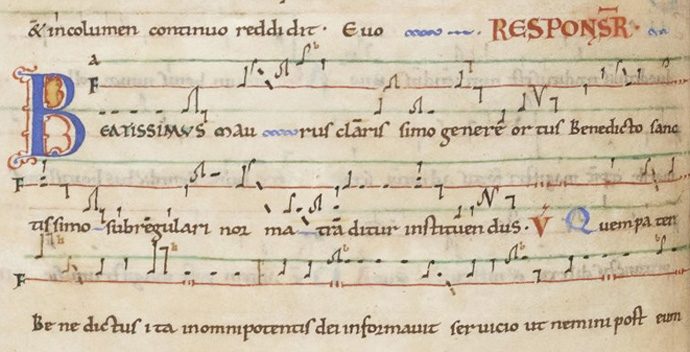 & incolumen continuo reddidit. Evo RESPONSR.
BEATISSIMVS mau rus claris simo genere or tus Benedicto sanc
tissimo sub regulari nor ma tradi ditur instituen dus. V Quem pa ter
Be ne dictus i ta in omnipotentis dei informavit ser vicio ut nemini post eum